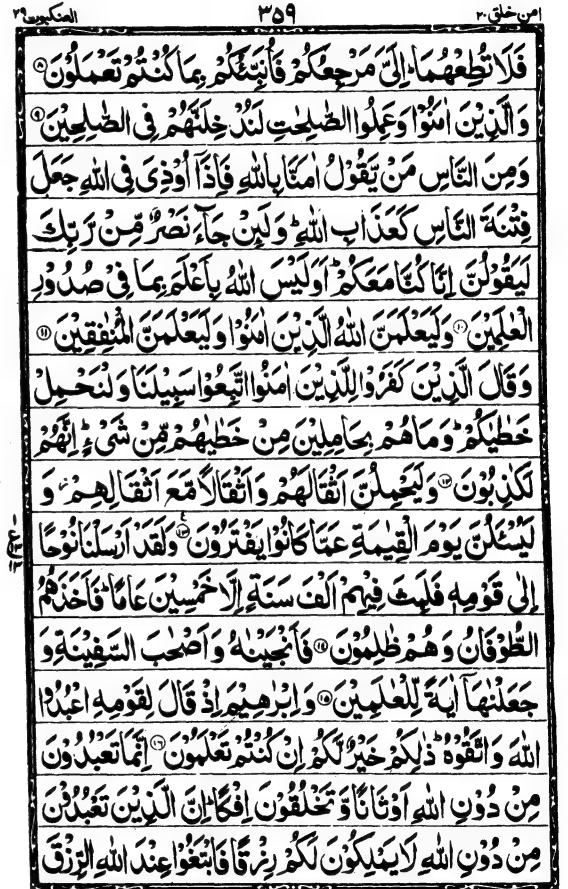 امن خلق ۲۰ ۳۵۹ العنكبوت ۲۹
فَلَا تُطِعْهُمَا ؕ اِلَیَّ مَرْجِعُكُمْ فَاُنَبِّئُكُمْ بِمَا كُنْتُمْ تَعْمَلُوْنَ ۝۸
وَالَّذِیْنَ اٰمَنُوْا وَعَمِلُوا الصّٰلِحٰتِ لَنُدْخِلَنَّهُمْ فِی الصّٰلِحِیْنَ ۝۹
وَمِنَ النَّاسِ مَنْ یَّقُوْلُ اٰمَنَّا بِاللّٰهِ فَاِذَاۤ اُوْذِیَ فِی اللّٰهِ جَعَلَ
فِتْنَةَ النَّاسِ كَعَذَابِ اللّٰهِ ؕ وَلَىِٕنْ جَآءَ نَصْرٌ مِّنْ رَّبِّكَ
لَیَقُوْلُنَّ اِنَّا كُنَّا مَعَكُمْ ؕ اَوَلَیْسَ اللّٰهُ بِاَعْلَمَ بِمَا فِیْ صُدُوْرِ
الْعٰلَمِیْنَ ۝۱۰ وَلَیَعْلَمَنَّ اللّٰهُ الَّذِیْنَ اٰمَنُوْا وَلَیَعْلَمَنَّ الْمُنٰفِقِیْنَ ۝۱۱
وَقَالَ الَّذِیْنَ كَفَرُوْا لِلَّذِیْنَ اٰمَنُوا اتَّبِعُوْا سَبِیْلَنَا وَلْنَحْمِلْ
خَطٰیٰكُمْ ؕ وَمَا هُمْ بِحَامِلِیْنَ مِنْ خَطٰیٰهُمْ مِّنْ شَیْءٍ ؕ اِنَّهُمْ
لَكٰذِبُوْنَ ۝۱۲ وَلَیَحْمِلُنَّ اَثْقَالَهُمْ وَاَثْقَالًا مَّعَ اَثْقَالِهِمْ ؗ وَ
لَیُسْـَٔلُنَّ یَوْمَ الْقِیٰمَةِ عَمَّا كَانُوْا یَفْتَرُوْنَ ۝۱۳ وَلَقَدْ اَرْسَلْنَا نُوْحًا
اِلٰی قَوْمِهٖ فَلَبِثَ فِیْهِمْ اَلْفَ سَنَةٍ اِلَّا خَمْسِیْنَ عَامًا ؕ فَاَخَذَهُمُ
الطُّوْفَانُ وَهُمْ ظٰلِمُوْنَ ۝۱۴ فَاَنْجَیْنٰهُ وَاَصْحٰبَ السَّفِیْنَةِ وَ
جَعَلْنٰهَاۤ اٰیَةً لِّلْعٰلَمِیْنَ ۝۱۵ وَاِبْرٰهِیْمَ اِذْ قَالَ لِقَوْمِهِ اعْبُدُوا
اللّٰهَ وَاتَّقُوْهُ ؕ ذٰلِكُمْ خَیْرٌ لَّكُمْ اِنْ كُنْتُمْ تَعْلَمُوْنَ ۝۱۶ اِنَّمَا تَعْبُدُوْنَ
مِنْ دُوْنِ اللّٰهِ اَوْثَانًا وَّتَخْلُقُوْنَ اِفْكًا ؕ اِنَّ الَّذِیْنَ تَعْبُدُوْنَ
مِنْ دُوْنِ اللّٰهِ لَا یَمْلِكُوْنَ لَكُمْ رِزْقًا فَابْتَغُوْا عِنْدَ اللّٰهِ الرِّزْقَ